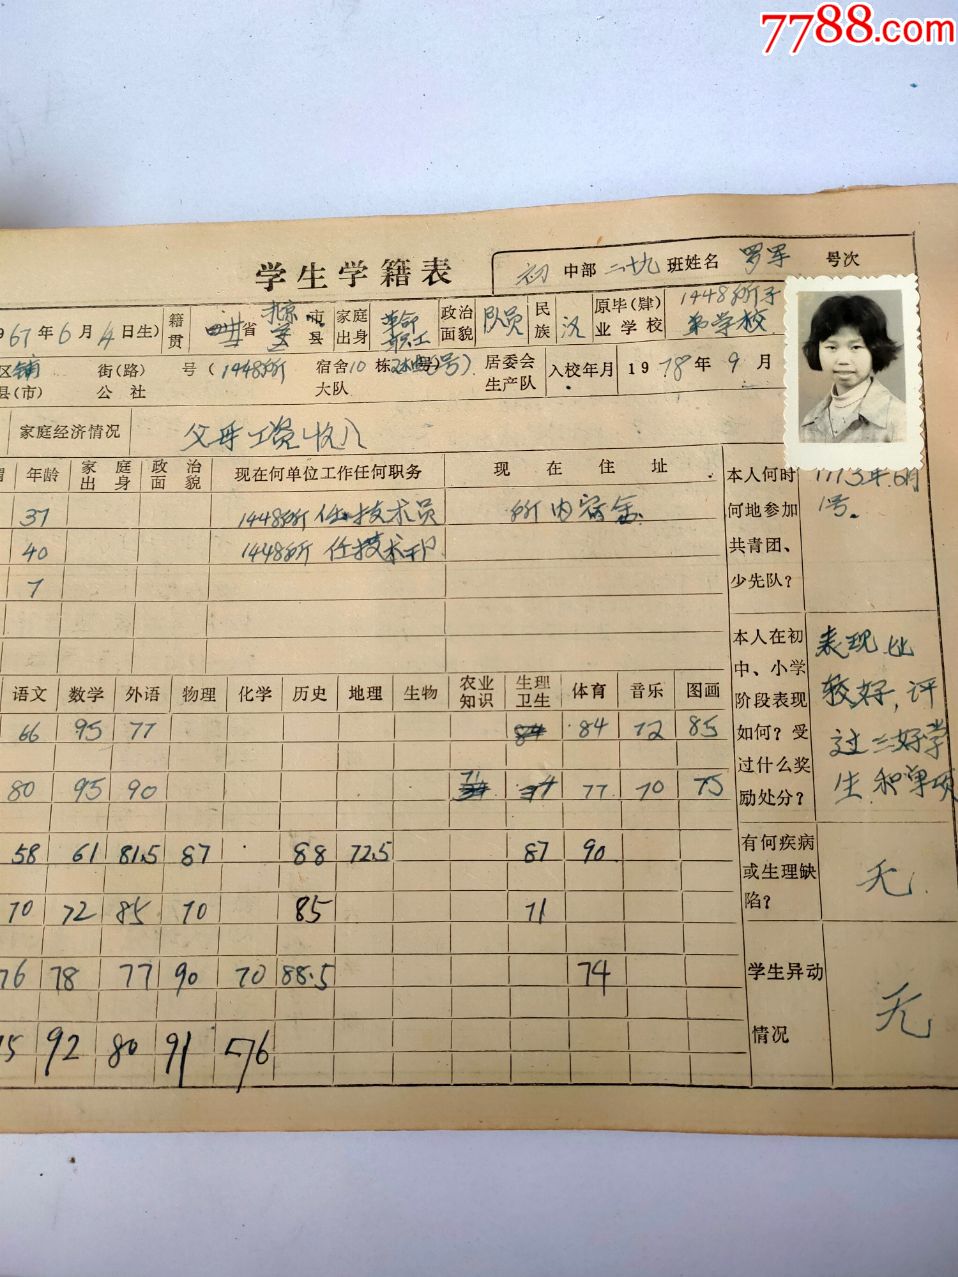 7788.com
学生学籍表
初 中部 二十九 班姓名 罗军 号次
961年6月4日生) 籍贯 省 北京 市县 家庭出身 革命职工 政治面貌 队员 民族 汉 原毕(肄)业学校 1448所子弟学校
区 镇 街(路) 号 ( 1448所 宿舍 10 栋 号) 居委会 入校年月 1978年9月
县(市) 公社 大队 生产队
家庭经济情况 父母工资收入
年龄 家庭出身 政治面貌 现在何单位工作任何职务 现在住址 本人何时何地参加共青团、少先队? 1973年6月1号。
37 1448所任技术员 所内宿舍
40 1448所任技术干部
7
本人在初中、小学阶段表现如何?受过什么奖励处分? 表现比较好,评过三好学生和单项
语文 数学 外语 物理 化学 历史 地理 生物 农业知识 生理卫生 体育 音乐 图画
66 95 77 84 72 85
80 95 90 71 77 70 75
58 61 81.5 87 88 72.5 87 90
有何疾病或生理缺陷? 无
70 72 85 70 85 71
76 78 77 90 70 88.5 74
学生异动情况 无
92 80 91 76